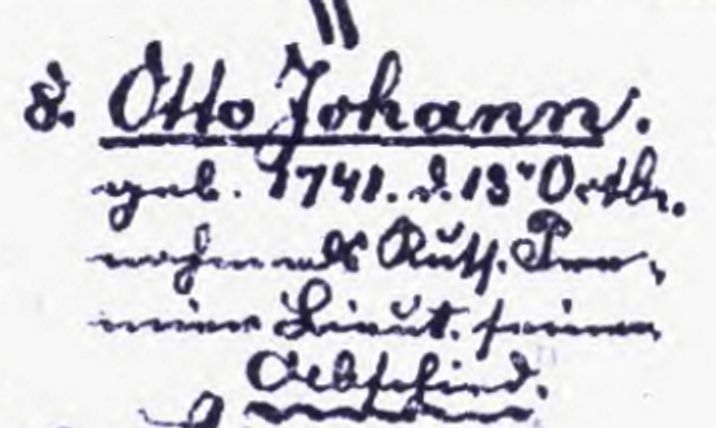 8. Otto Johann.
geb. 1741. d. 13t Octbr.
nahm als Russ. Pre-
mier Lieut. seinen
Abschied.